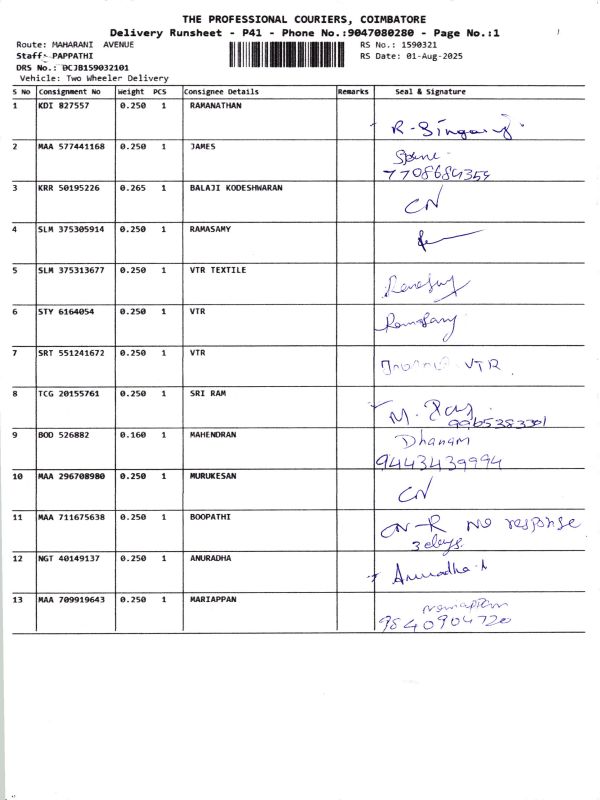 THE PROFESSIONAL COURIERS, COIMBATORE
Delivery Runsheet - P41 - Phone No.:9047080280 - Page No.:1
Route: MAHARANI AVENUE RS No.: 1590321
Staff: PAPPATHI RS Date: 01-Aug-2025
DRS No.: DCJB159032101
Vehicle: Two Wheeler Delivery
S No Consignment No Weight PCS Consignee Details Remarks Seal & Signature
1 KDI 827557 0.250 1 RAMANATHAN
2 MAA 577441168 0.250 1 JAMES
7708684359
3 KRR 50195226 0.265 1 BALAJI KODESHWARAN CN
4 SLM 375305914 0.250 1 RAMASAMY
5 SLM 375313677 0.250 1 VTR TEXTILE
6 STY 6164054 0.250 1 VTR
7 SRT 551241672 0.250 1 VTR VTR
8 TCG 20155761 0.250 1 SRI RAM
9 BOD 526882 0.160 1 MAHENDRAN Dhanam
9443439994
10 MAA 296708980 0.250 1 MURUKESAN CN
11 MAA 711675638 0.250 1 BOOPATHI CN-R No response
3 days
12 NGT 40149137 0.250 1 ANURADHA Anuradha
13 MAA 709919643 0.250 1 MARIAPPAN
9840904720